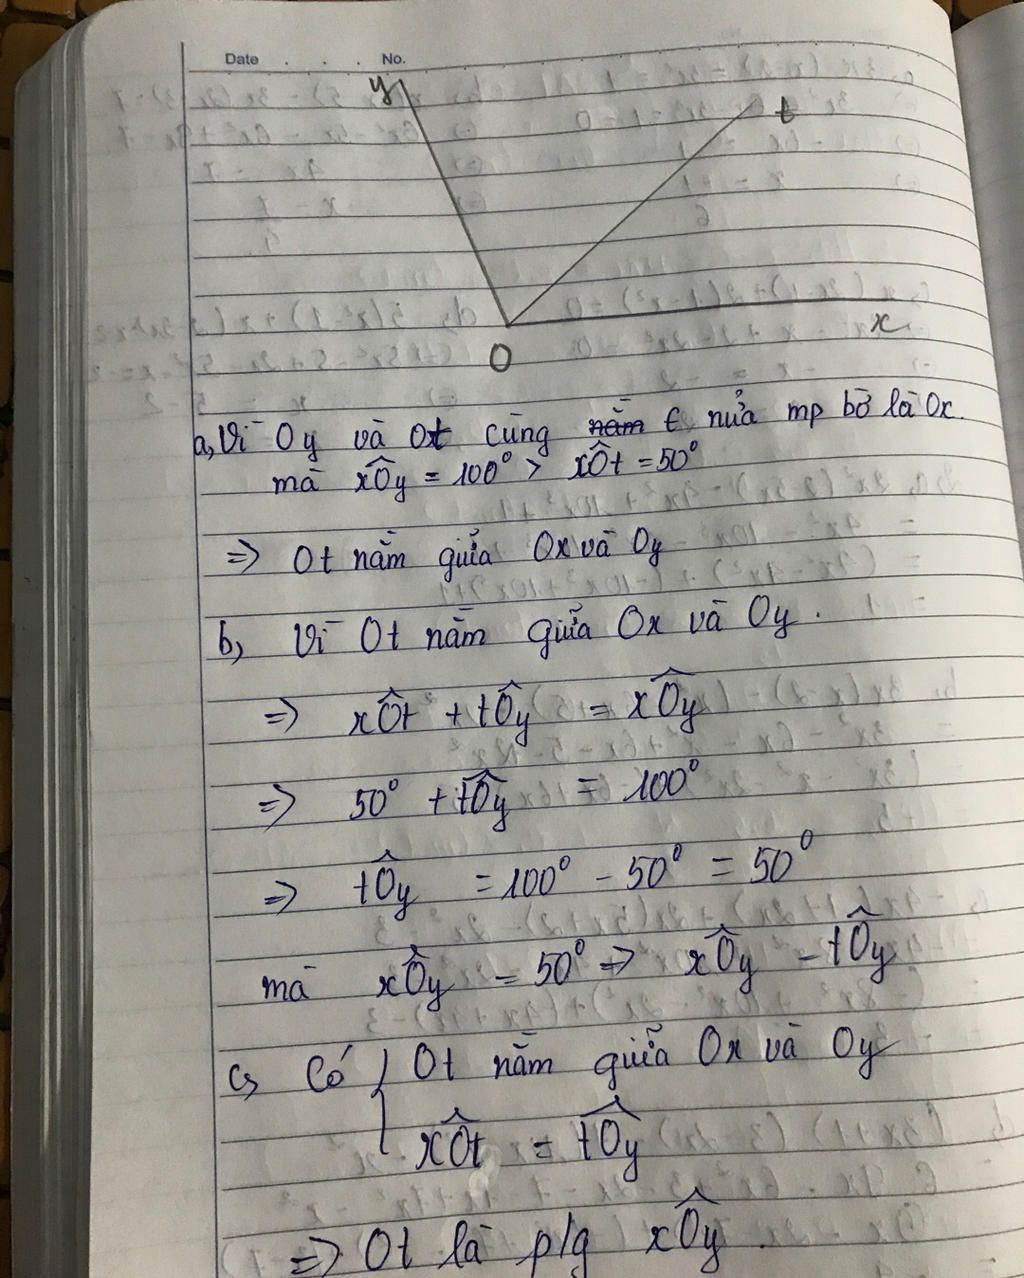 Date . . . No.
y
t
x
O
a, Vì Oy và Ot cùng nằm ∈ nửa mp bờ là Ox.
mà xÔy = 100° > xÔt = 50°
=> Ot nằm giữa Ox và Oy
b, Vì Ot nằm giữa Ox và Oy.
=> xÔt + tÔy = xÔy
=> 50° + tÔy = 100°
=> tÔy = 100° - 50° = 50°
mà xÔy = 50° => xÔy = tÔy
c, Có { Ot nằm giữa Ox và Oy
xÔt = tÔy
=> Ot là p/g xÔy.